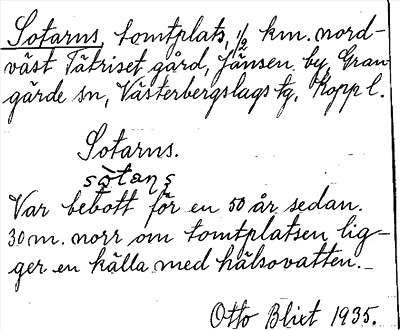 Sotarns, tomtplats, 1/2 km. nord-
väst Tätriset gård, Jänsen by, Gran
gärde sn, Västerbergslags tg, Koppl.
Sotarns.
sòtaṇṣ
Var bebott för en 50 år sedan.
30 m. norr om tomtplatsen lig-
ger en källa med hälsovatten.
Otto Blixt 1935.